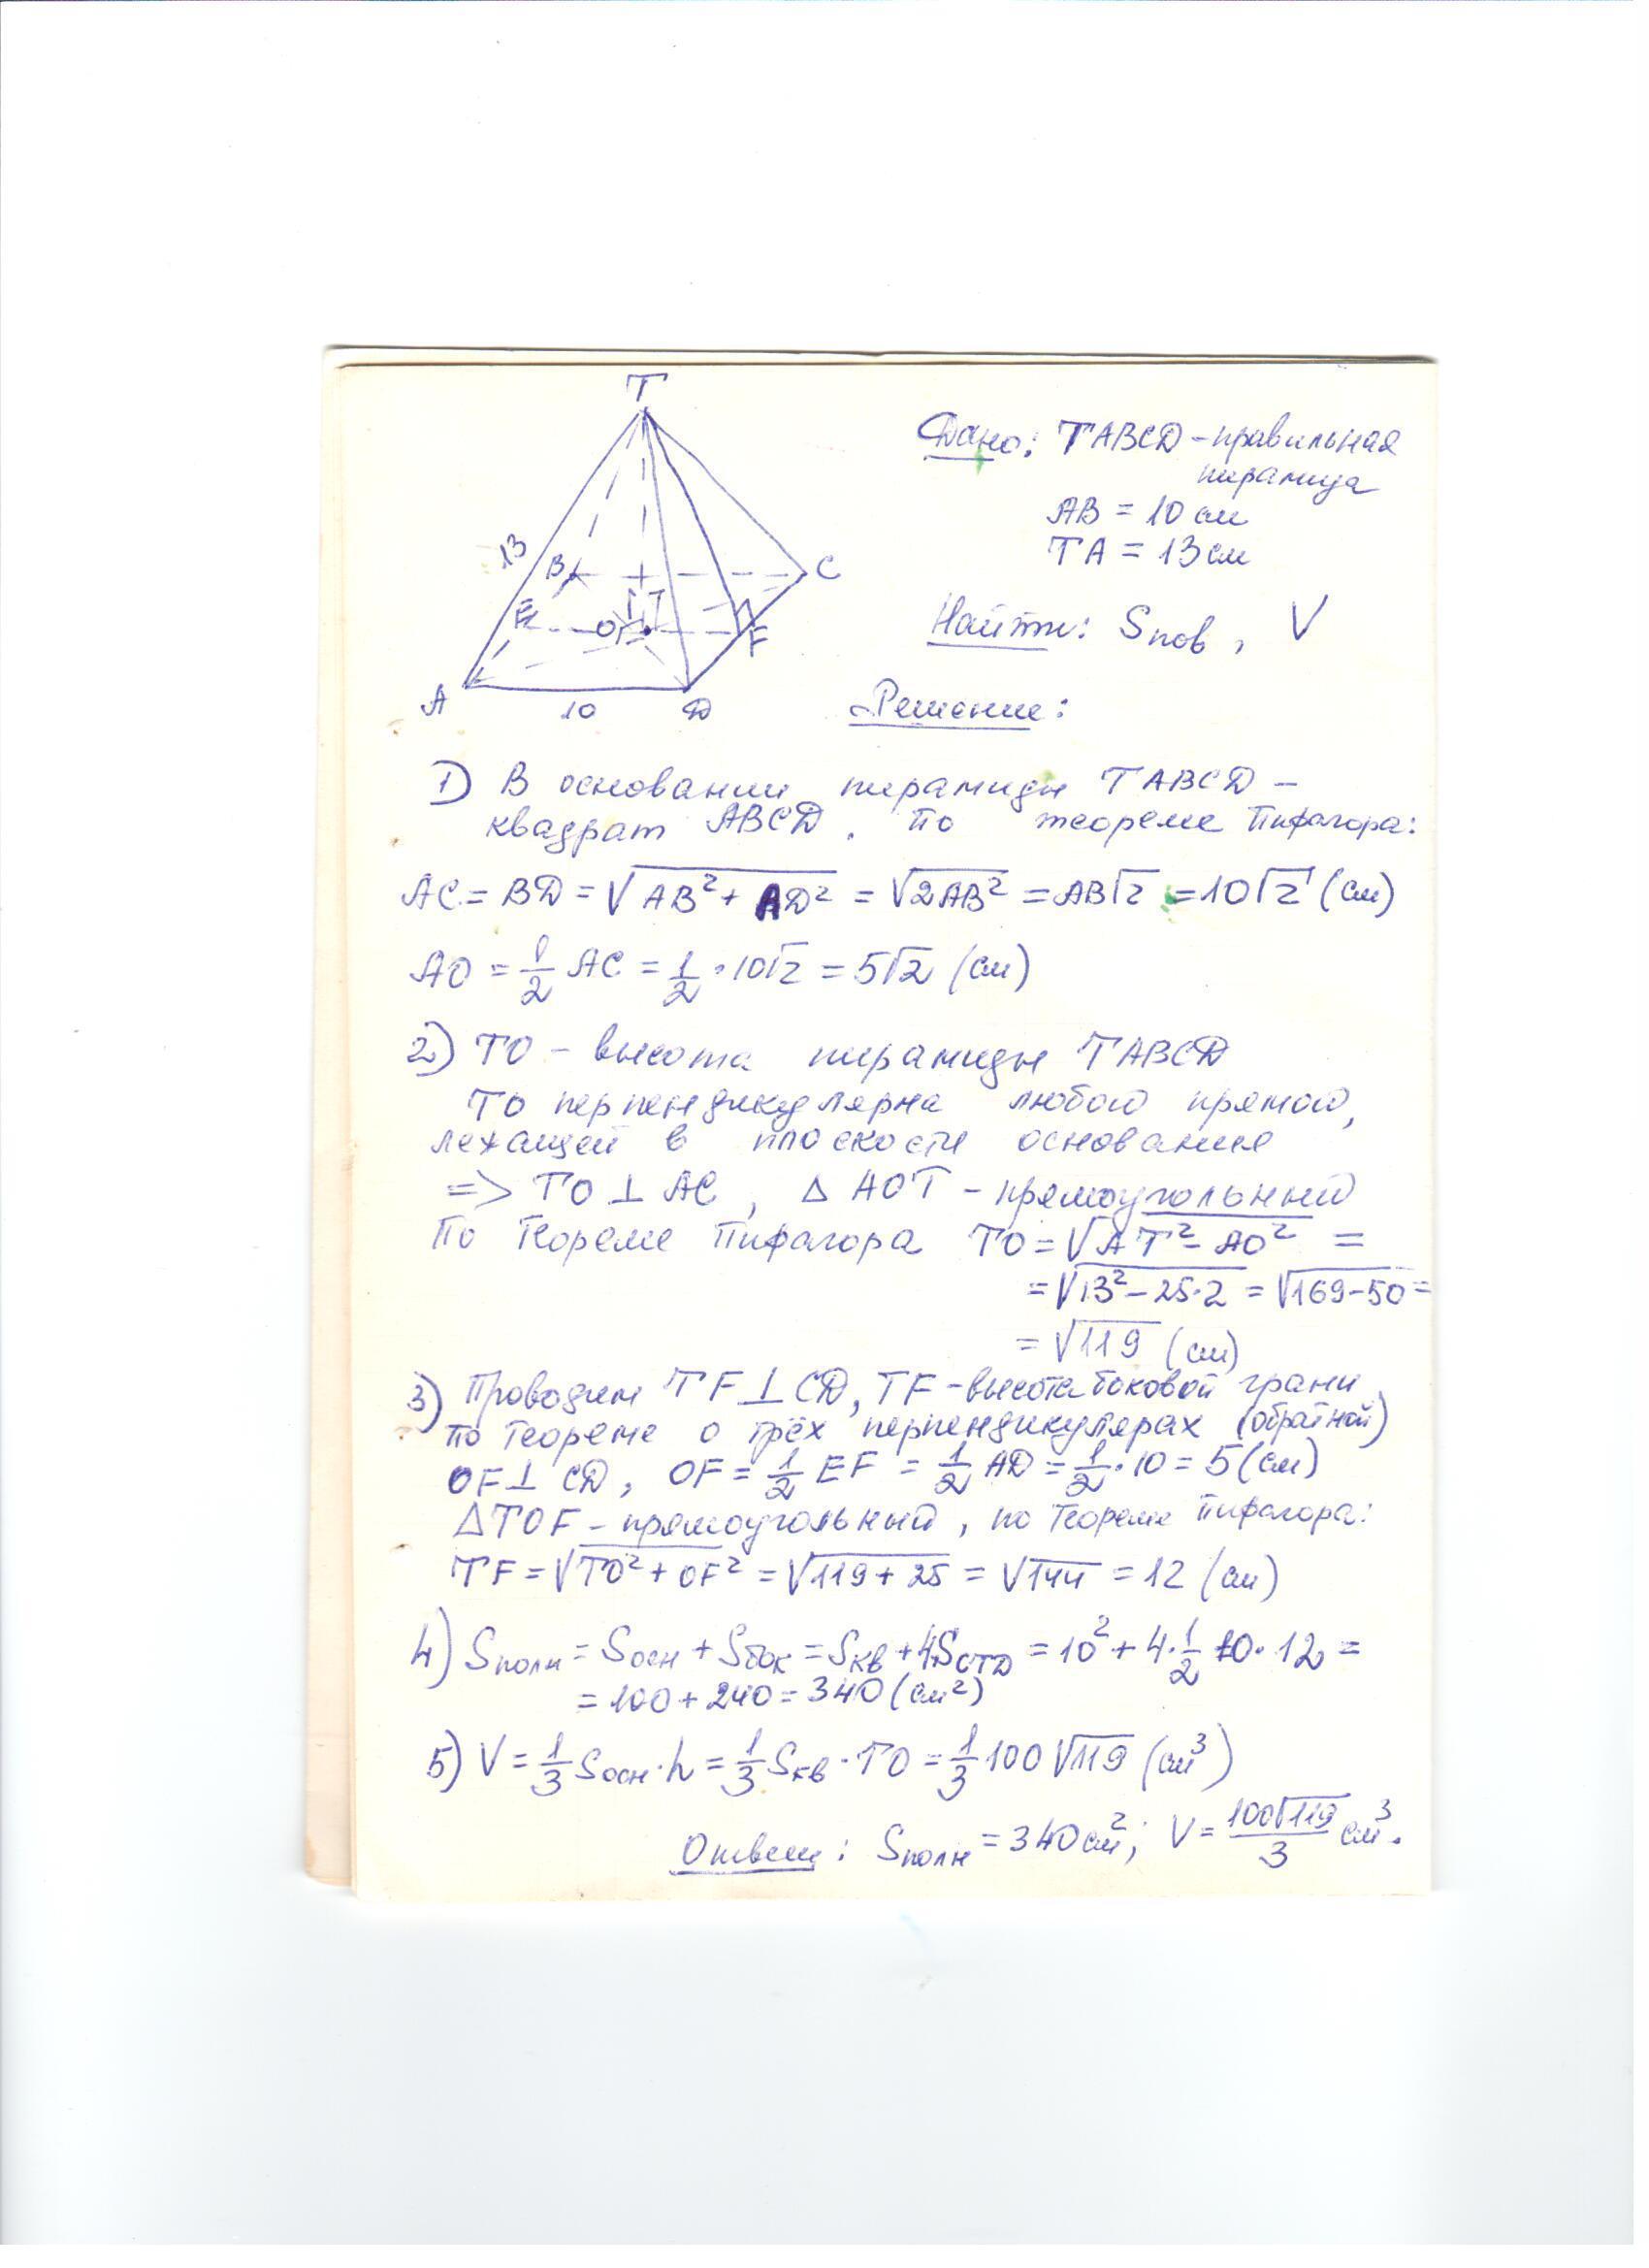 T
Дано: TABCD - правильная
пирамида
AB = 10 см
13
TA = 13 см
B
C
E
O
F
Найти: Sпов, V
A
10
D
Решение:
1) В основании пирамиды TABCD -
квадрат ABCD. По теореме Пифагора:
AC = BD = √(AB² + AD²) = √(2AB²) = AB√2 = 10√2 (см)
AO = 1/2 AC = 1/2 · 10√2 = 5√2 (см)
2) TO - высота пирамиды TABCD
TO перпендикулярна любой прямой,
лежащей в плоскости основания
=> TO ⊥ AC, Δ AOT - прямоугольный
По теореме Пифагора TO = √(AT² - AO²) =
= √(13² - 25·2) = √(169-50) =
= √119 (см)
3) Проводим TF ⊥ CD, TF - высота боковой грани
по теореме о трёх перпендикулярах (обратной)
OF ⊥ CD, OF = 1/2 EF = 1/2 AD = 1/2 · 10 = 5 (см)
ΔTOF - прямоугольный, по теореме Пифагора:
TF = √(TO² + OF²) = √(119 + 25) = √144 = 12 (см)
4) Sполн = Sосн + Sбок = Sкв + 4SCTD = 10² + 4·1/2 10·12 =
= 100 + 240 = 340 (см²)
5) V = 1/3 Sосн·h = 1/3 Sкв · TO = 1/3 100√119 (см³)
Ответ: Sполн = 340 см²; V = 100√119/3 см³.